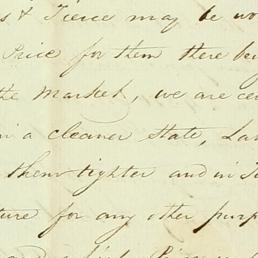 & Tierce may be wo
Price for them there be
the Market, we are ce
in a cleaner state, La
them tighter and in T
ture for any other purp